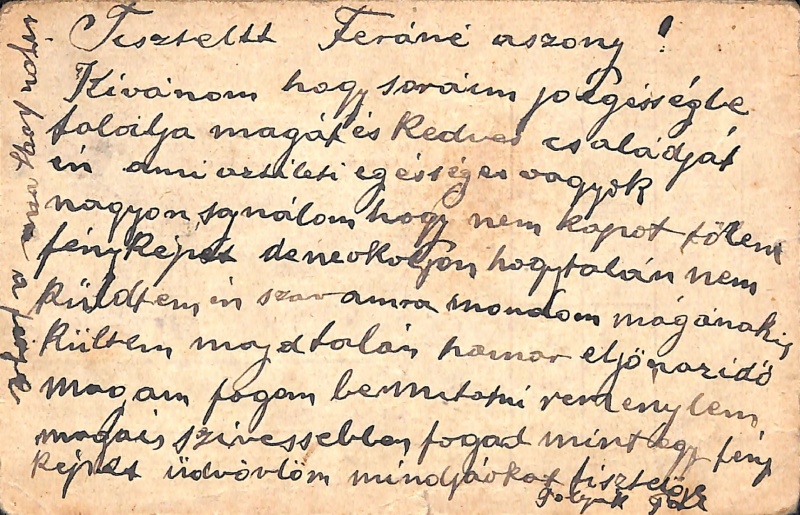 Tiszteltt Feráné aszony!
Kívánom hogy soraim jo egésségbe
találja magát és Kedves családját
én ami aztileti egésséges vagyok
nagyon sajnálom hogy nem kapot tölem
fényképet de neokoljon hogy talán nem
küldtem én szavamra mondom magának is
Kültem majd talán hamar eljön az idő
magam fogom bemutatni reménylem
magais szivessebben fogad mint egy fény
képet üdvözlöm mindjáokat tisztelője
Pál